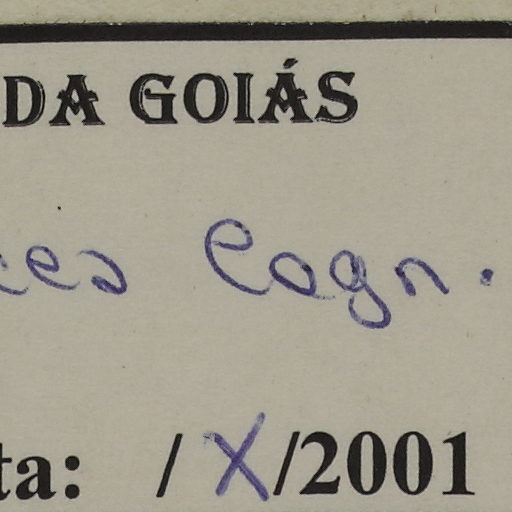 DA GOIÁS
Cogn.
ta: / X/2001